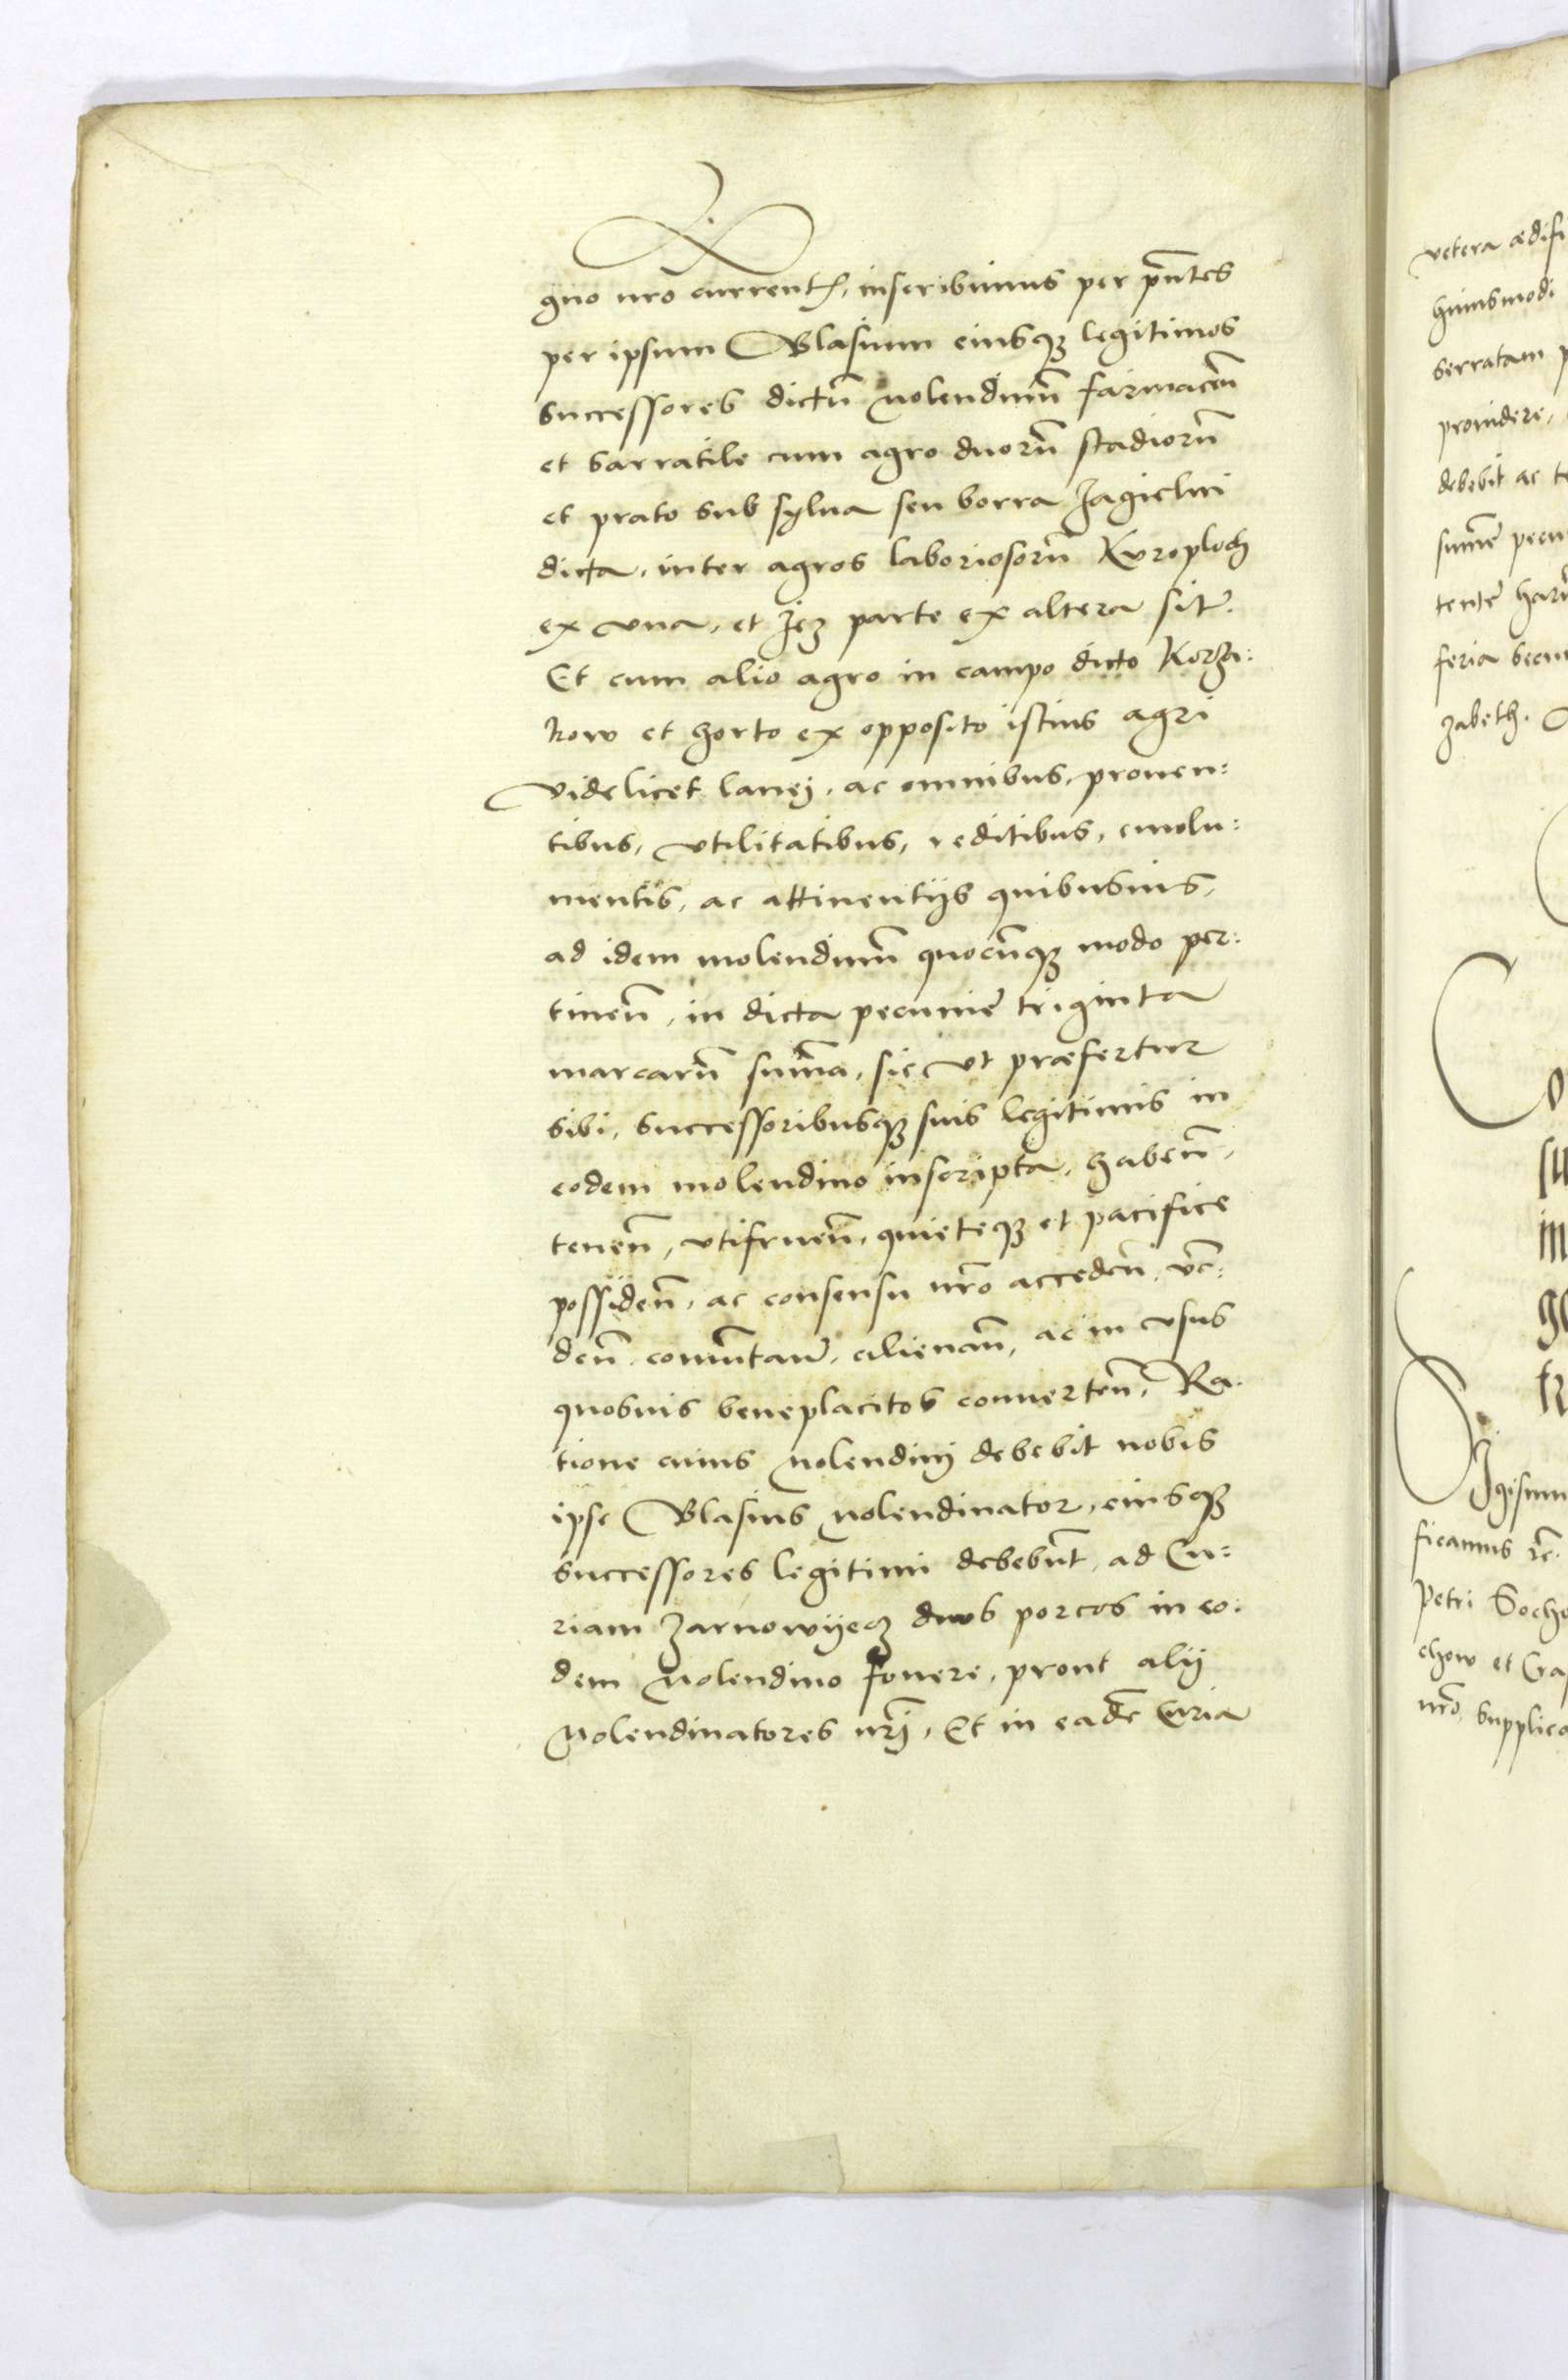 gno nrō currenti, inscribimus per pn̄tes
per ipsum Blasium eiusqȝ legitimos
successores dictū molendinū farinaceū
et sarratile cum agro duorū stadiorū
et prato sub sylua seu borra
dicta, inter agros laboriosorū Kvroploch
ex vna, et Jez parte ex altera sit̄.
Et cum alio agro in campo dicto Korza:
kow et horto ex opposito istius agri
videlicet lanej, ac omnibus, prouen:
tibus, vtilitatibus, reditibus, emolu:
mentis, ac attinentijs quibusuis,
ad idem molendinū quocūqȝ modo per:
tinen̄, in dicta pecunie triginta
marcarū sum̄a, sic vt præfertur
sibi, successoribusqȝ suis legitimis in
eodem molendino inscripta, haben̄,
tenen̄, vtifruen̄, quieteqȝ et pacifice
possiden̄, ac consensu nrō acceden̄, vē:
den̄, commutan̄, alienan̄, ac in vsus
quosuis beneplacitos conuerten̄, Ra:
tione cuius Molendinj debebit nobis
ipse Blasius Molendinator, eiusqȝ
successores legitimi debebūt, ad Cu:
riam Zarnowyecz duos porcos in eo:
dem Molendino fouere, prout alij
Molendinatores nrī, Et in eadē Curia
vetera ædifi
huiusmodi
serratam p
prouidere,
debebit ac te
summē pecu
feria secun
zabeth.
ficamus
Petri Socho
chow et Ga
nrō, supplica